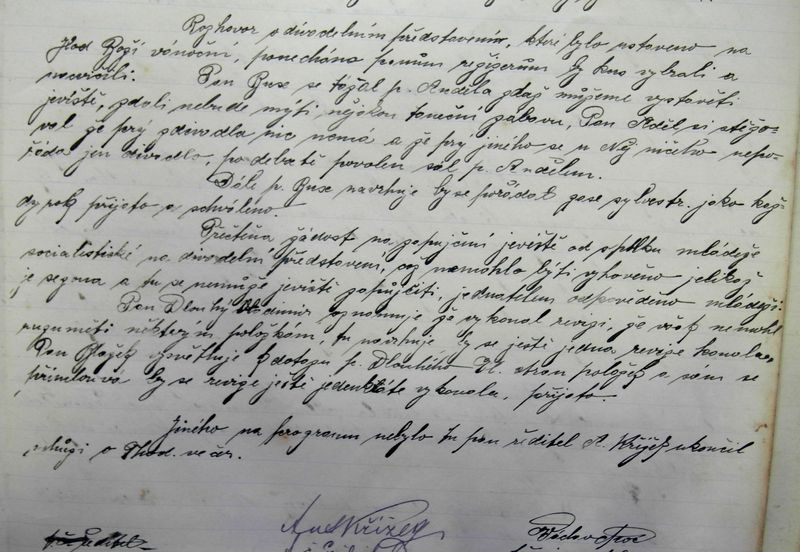 Rozhovor o divadelním představením, které bylo ustaveno na
Hod Boží vánoční, ponecháno panům režizerům by kus vybrali a
nacvičili. Pan Ruse se tázal p. Anděla zdaž můžeme vystavěti
jeviště, zdali nebude mýti nějakou taneční zábavu, Pan Aděl si stěžo-
val že prý zdivadla nic nemá a že prý jiného se u Něj ničeho nepo-
řáda jen divadlo, po debatě povolen sál p. Andělem.
Dále p. Ruse navrhuje by se pořádal zase sylvestr. jako kaž-
dy rok přijato a schváleno.
Přečtěna žádost na zapujčání jeviště od spolku mládeže
socialistické na divadelni představení, což nemohlo býti vyhověno jelikož
je sezona a tu se nemůže jeviště zapůjčiti, jednatelem odpověděno mládeži
Pan Dlouhy Vladimir oznamuje že vykonal revizi, že však nemohl
rozuměti některym položkám, tu navrhuje by se ještě jedna revize konala.
Pan vysvětluje k dotazu p. Dlouhého Vl. stran položek a sám se
přimlouvá by se revize ještě jedenkráte vykonala, přijato
Jiného na program nebylo tu pan ředitel A. Křížek ukončil
schůzi o hod. večer.
Ant Křížek
ředitel